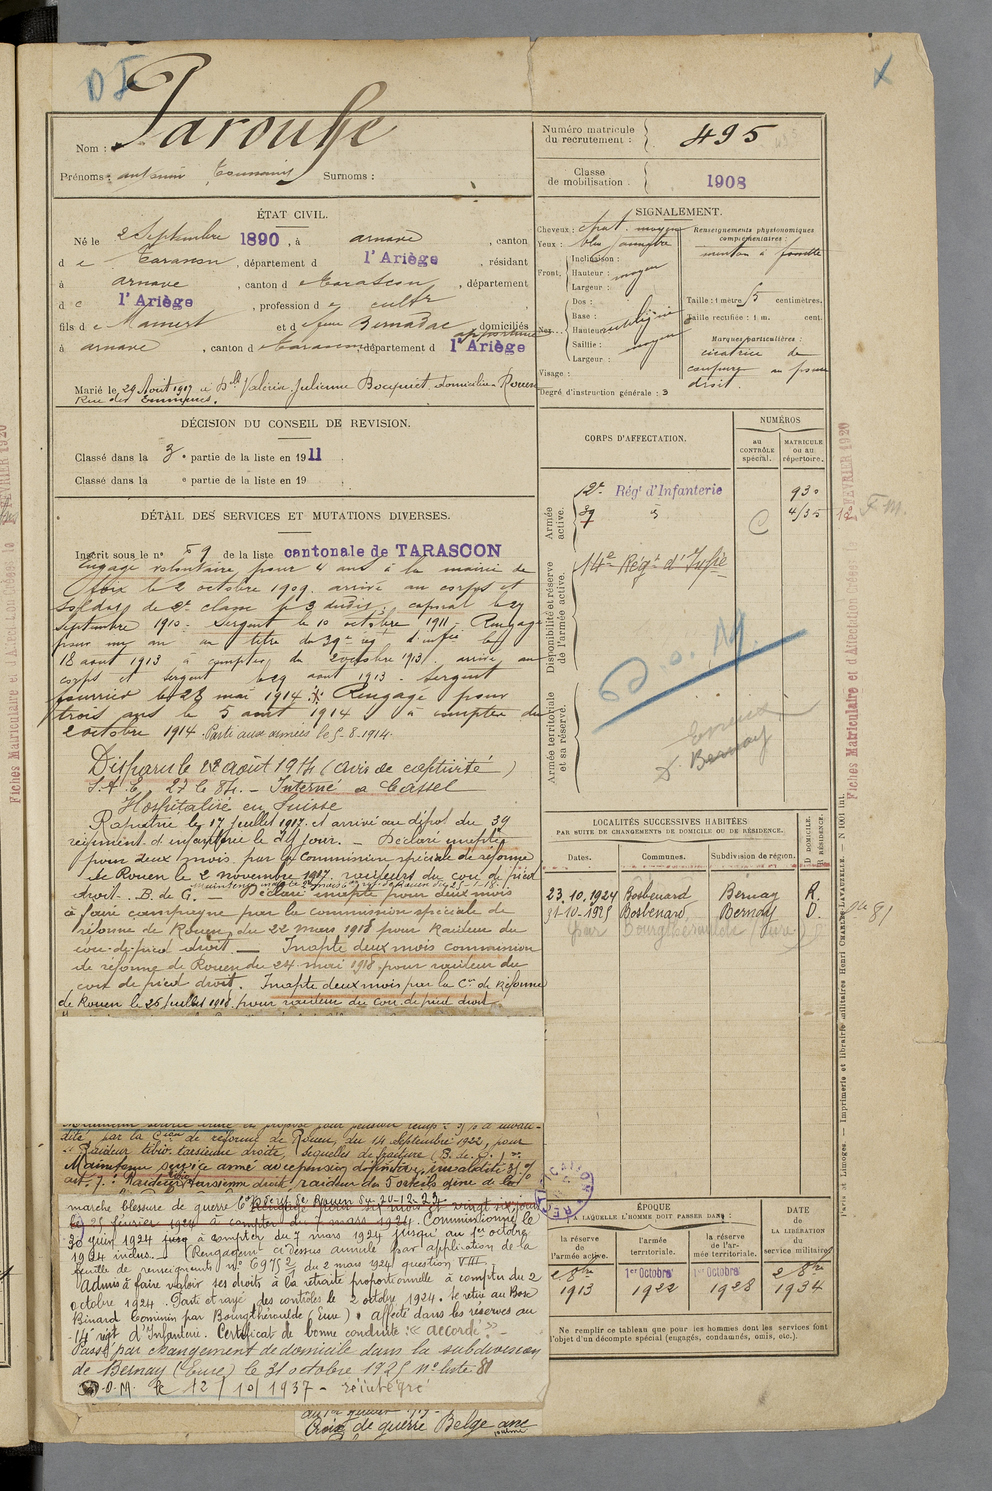 D I
Nom : Parousse
Prénoms : Antonin Toussaint Surnoms :
Numéro matricule du recrutement : 495
Classe de mobilisation : 1908
ÉTAT CIVIL.
Né le 2 Septembre 1890, à arnave, canton
d e Tarascon, département d l'Ariège, résidant
à arnave, canton d e Tarascon, département
d e l'Ariège, profession d e cultr
fils d e Mamert et d e feue Bernadac domiciliés
à arnave, canton d e Tarascon, département d l'Ariège
Marié le 29 Août 1917 à Dlle Valérie Julienne Bocquet, domiciliée Rouen
Rue des Emmurées.
SIGNALEMENT.
Cheveux : chat. moyen
Yeux : bleu
Front. Inclinaison :
Hauteur : moyen
Largeur :
Nez. Dos :
Base :
Hauteur rectiligne
Saillie : moyen
Largeur :
Visage :
Renseignements physionomiques complémentaires :
menton à fossette
Taille : 1 mètre 65 centimètres.
Taille rectifiée : 1 m. cent.
Marques particulières :
cicatrice de
coupure au pouce
droit.
Degré d'instruction générale : 3
DÉCISION DU CONSEIL DE REVISION.
Classé dans la 3e partie de la liste en 1911
Classé dans la e partie de la liste en 19
DÉTAIL DES SERVICES ET MUTATIONS DIVERSES.
Inscrit sous le n° 59 de la liste cantonale de TARASCON
Engagé volontaire pour 4 ans à la mairie de
Foix le 2 octobre 1909. arrivé au corps et
soldat de 2e classe le 3 dudit; caporal le 29
Septembre 1910. Sergent le 10 octobre 1911. Rengagé
pour un an au titre du 39e rég. d'infie le
18 août 1913 à compter du 2 octobre 1913. arrivé au
corps et sergent le 29 août 1913. Sergent
fourrier le 28 mai 1914. Rengagé pour
trois ans le 5 août 1914 à compter du
2 octobre 1914. Parti aux armées le 5-8-1914.
Disparu le 28 août 1914 (avis de captivité)
Interné à Cassel
Hospitalisé en Suisse
Rapatrié le 17 juillet 1917. et arrivé au dépôt du 39
régiment d'infanterie le dit jour. — Déclaré inapte
pour deux mois par la Commission spéciale de réforme
de Rouen le 2 novembre 1917. raideur du cou de pied
droit. B. de G. — Déclaré inapte pour deux mois
à faire campagne par la commission spéciale de
réforme de Rouen du 22 mars 1918 pour raideur du
cou-de-pied droit. — Inapte deux mois commission
de réforme de Rouen du 24 mai 1918 pour raideur du
cou de pied droit. Inapte deux mois par la Con de Réforme
de Rouen le 26 juillet 1918 pour raideur du cou de pied droit.
dité, par la Cion de réforme de Rouen, du 14 septembre 1922, pour
Raideur tibio tarsienne droite, séquelles de fracture (B. de G.)
Maintenu service armé avec pension définitive, invalidité
marche blessure de guerre Con Réf. de Rouen du 20-12-23. Rengagé pour six mois et vingt six jours
le 25 février 1924 à compter du 7 mars 1924. Commissionné le
30 juin 1924 jusq. à compter du 7 mars 1924 jusqu'au 1er octobre
1924 inclus. — Rengagement ci-dessus annulé par application de la
feuille de renseignements N° 6975 du 2 mars 1924 question VIII.
Admis à faire valoir ses droits à la retraite proportionnelle à compter du 2
octobre 1924. Parti et rayé des contrôles le 2 octobre 1924. Se retire au Bosc
Bénard Commin par Bourgtheroulde (Eure). Affecté dans les réserves au
14 rgt d'Infanterie. Certificat de bonne conduite « accordé »
Passé par changement de domicile dans la subdivision
de Bernay (Eure) le 31 octobre 1925 N° liste 81
D.O.M. le 12/10/1937 - réintégré
Croix de guerre Belge avec
palme
CORPS D'AFFECTATION.
NUMÉROS
au contrôle spécial.
matricule ou au répertoire.
Armée active.
12e Régt d'Infanterie 930
39 d° 4/35
C
Disponibilité et réserve de l'armée active.
14e Régt d'Infie
Armée territoriale et sa réserve.
D.O.M.
Evreux
Bernay
LOCALITÉS SUCCESSIVES HABITÉES
PAR SUITE DE CHANGEMENTS DE DOMICILE OU DE RÉSIDENCE.
Dates. Communes. Subdivision de région. D DOMICILE. R RÉSIDENCE.
23.10.1924 Bosbenard Bernay R.
31-10-1925 Bosbenard Bernay D.
(par Bourgtheroulde (Eure))
ÉPOQUE
À LAQUELLE L'HOMME DOIT PASSER DANS :
la réserve de l'armée active.
l'armée territoriale.
la réserve de l'armée territoriale.
DATE DE LA LIBÉRATION du service militaire
2 8bre 1913
1er Octobre 1922
1er Octobre 1928
2 8bre 1934
Ne remplir ce tableau que pour les hommes dont les services font
l'objet d'un décompte spécial (engagés, condamnés, omis, etc.).
RECTIFICATION
Fiches Matriculaire et d'Affectation Créées le 12 FÉVRIER 1920
F.M.
Paris et Limoges. — Imprimerie et librairie militaires Henri CHARLES-LAVAUZELLE. — N 1001 int.